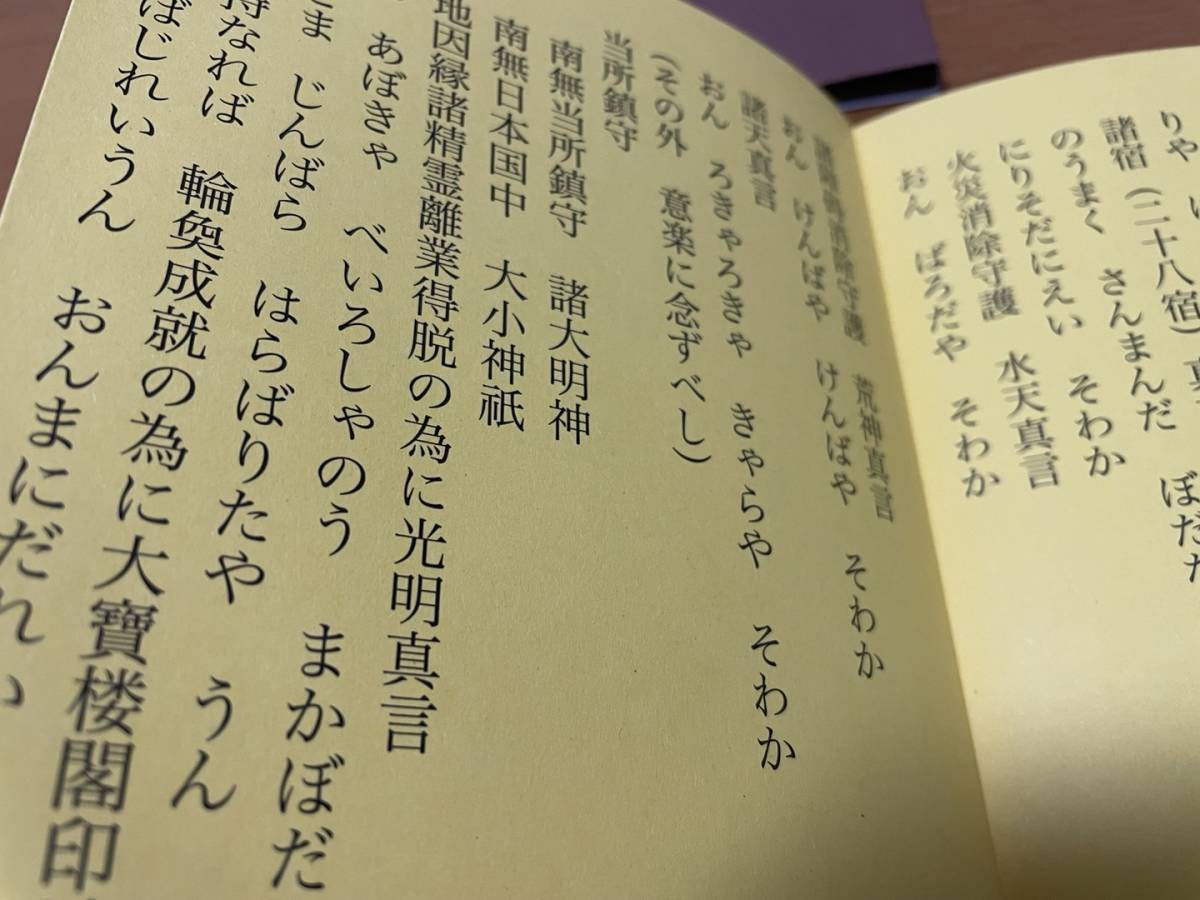 りや
諸宿（二十八宿）真
のうまく　さんまんだ　ぼだな
にりそだにえい　そわか
火災消除守護　水天真言
おん　ばろだや　そわか
消除守護　荒神真言
おん　けんばや　けんばや　そわか
諸天真言
おん　ろきゃろきゃ　きゃらや　そわか
（その外　意楽に念ずべし）
当所鎮守
南無当所鎮守　諸大明神
南無日本国中　大小神祇
地因縁諸精霊離業得脱の為に光明真言
あぼきゃ　べいろしゃのう　まかぼだ
じんばら　はらばりたや　うん
持なれば　輪奐成就の為に大寶楼閣印
ばじれいうん　おんまにだれい